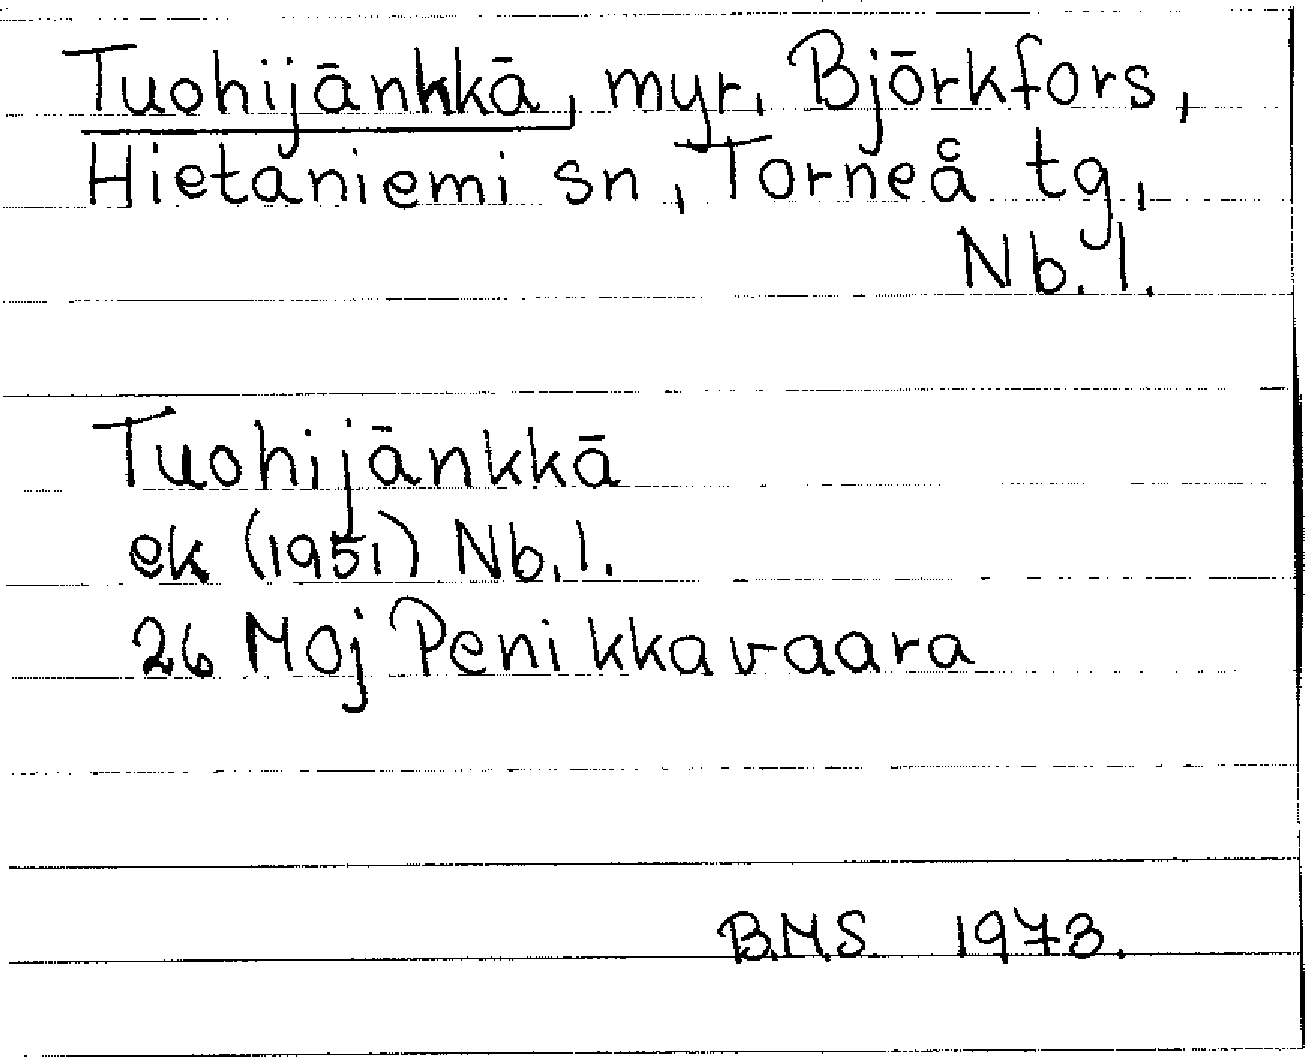 Tuohijänkkä, myr, Björkfors,
Hietaniemi sn, Torneå tg,
Nb. l.
Tuohijänkkä
ek (1951) Nb. l.
26 Moj Penikkavaara
B.M.S. 1973.